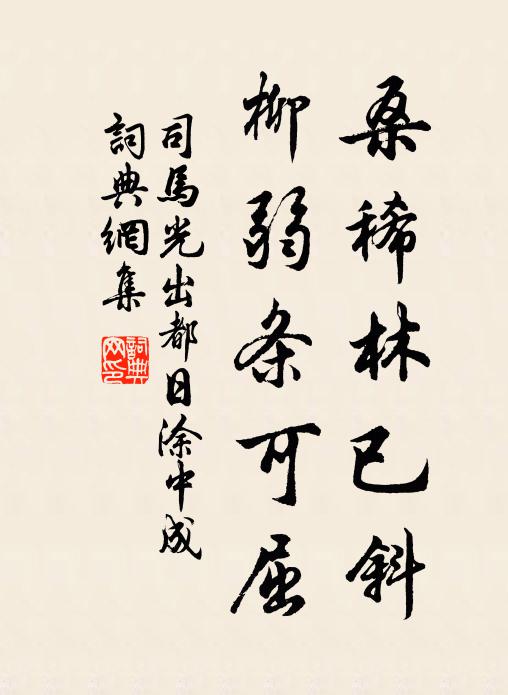 桑稀林已斜
柳弱条可屈
司馬光出都日涂中成
詞典網集
詞典网印